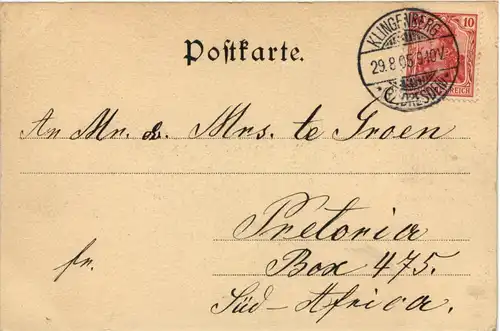 Postkarte.
KLINGENBERG
29.8.05.9-10V.
* (BZ. DRESDEN) *
10
REICH
An Mr. & Mrs. te Groen
Pretoria
fr.
Box 475.
Süd-Africa.